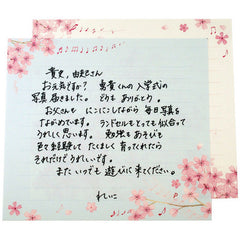 貴史、由紀さん
お元気ですか？ 恵貴くんの入学式の
写真届きました。どうも ありがとう。
お父さんも にこにこしながら 毎日写真を
ながめています。ランドセルもとっても似合って
うれしく思います。勉強もあそびも
色々経験して たくましく 育ってくれたら
それだけでうれしいです。
また、いつでも 遊びに来てください。
れいこ